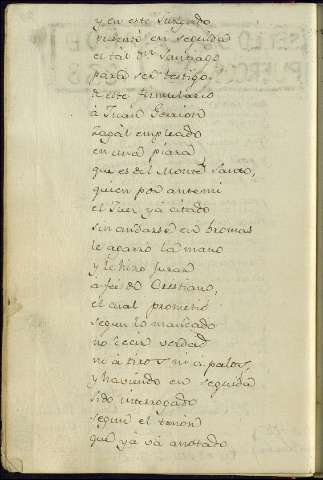 y en este Juzgado
presentó en seguida
el tál Dn. Santiago
para ser testigo,
de este formulario
à Juán Gerrion
Zagál empleado
en una piara
que es del Monte Santo,
quien por ante mi
el Juez yá citado
sin andarse en bromas
le agarró la mano
y le hizo Jurar
a fée de Crestiano,
el cual prometió
segun lo mandado
no decir verdad
ni à tiros ni à palos,
y haviendo en seguida
sido interrogado
segun el tenor
que yá vá anotado